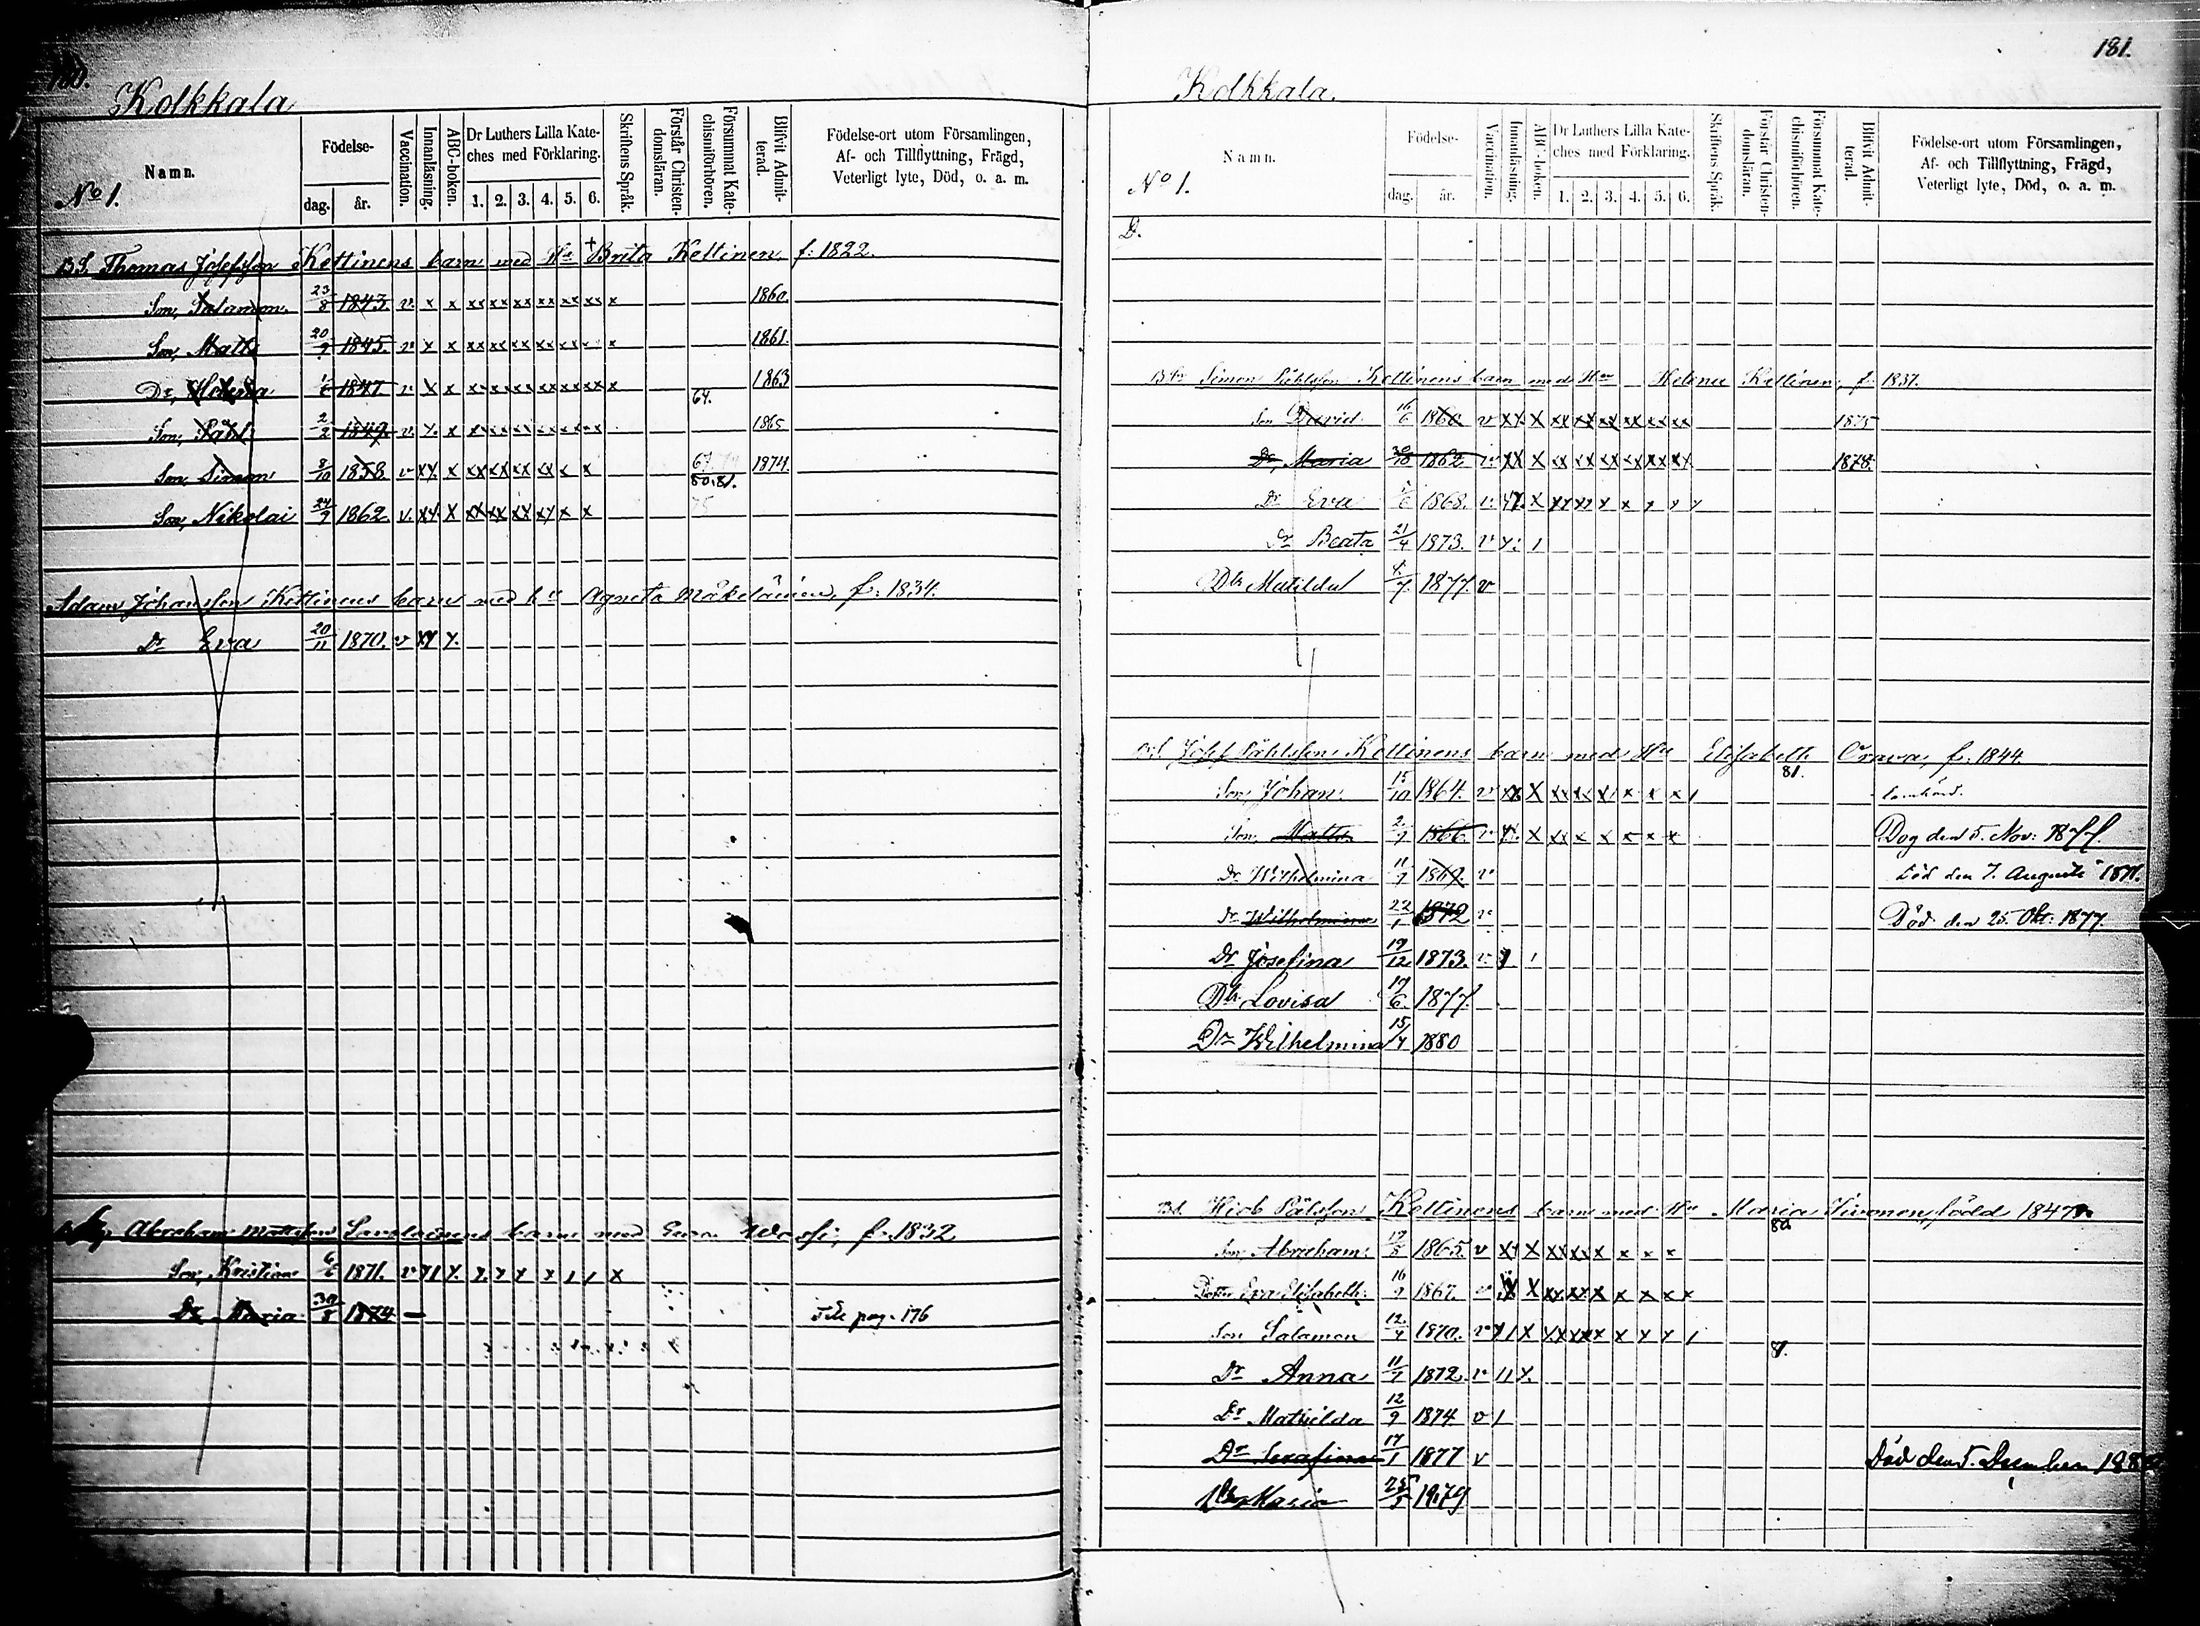 180.
Kolkkala
Namn.
No 1.
Födelse-
dag. år.
Vaccination.
Innanläsning.
ABC-boken.
Dr Luthers Lilla Kate-
ches med Förklaring.
1. 2. 3. 4. 5. 6.
Skriftens Språk.
Förstår Christen-
domsläran.
Försummat Kate-
chismiförhören.
Blifvit Admit-
terad.
Födelse-ort utom Församlingen,
Af- och Tillflyttning, Frägd,
Veterligt lyte, Död, o. a. m.
Thomas Josefsson Kettinens barn med Hu Brita Keltinen f: 1822.
Son, Salamon. 23/8 1843. v. x x xx xx xx xx xx xx x 1860.
Son, Matts 20/9 1845. v x x xx xx xx xx xx x 1861.
Dr, Helena 1847. v x x 64. 1863
Son, Påhl 2/2 1849. v. 1865
Son, Simon 8/10 1858. v xx x xx xx xx xx x x 80.81. 1874.
Son, Nikolai 24/9 1862 v. xx x xx xx xx xx x x
Adam Johansson Kettinens barn med hu Agneta Mäkeläinen, f: 1834.
Dr Eva 20/11 1870. v
Abraham Mattsson Savolainens barn med Eva f: 1832
Son, Kristian 6/6 1871. v
Dr Maria 30/8 1874 — Till pag. 176
181.
Kolkkala.
Namn.
No 1.
Födelse-
dag. år.
Vaccination.
Innanläsning.
ABC-boken.
Dr Luthers Lilla Kate-
ches med Förklaring.
1. 2. 3. 4. 5. 6.
Skriftens Språk.
Förstår Christen-
domsläran.
Försummat Kate-
chismiförhören.
Blifvit Admit-
terad.
Födelse-ort utom Församlingen,
Af- och Tillflyttning, Frägd,
Veterligt lyte, Död, o. a. m.
D.
Simon Påhlsson Kettinens barn med Hu Helena Kettinen, f: 1837.
Son David 16/6 1860 v xx x xx xx xx xx xx xx 1875
Dr, Maria 1862 v xx x xx xx xx xx xx xx 1878.
Dr Eva 1868. v.
Dr Beata 21/4 1873. v
Dr Matilda 1877. v
Josef Påhlsson Kettinens barn med Hu Elisabeth Orava, f: 1844
Son, Johan. 15/10 1864. v xx x xx xx xx x x x 81.
Son, Matts 2/9 1866. v x xx x x x x x Dog den 5. Nov: 1877.
Dr Wilhelmina 1869. v Död den 7. Augusti 1871.
Dr Wilhelmina 22/1 1872 v Död den 25. Okt. 1877.
Dr Josefina 19/12 1873. v
Dr Lovisa 19/6 1877.
Dr Wilhelmina 15/4 1880
Hiob Pålsson Kettinens barn med Hu Maria född 1847
Son, Abraham. 1865. v xx x xx xx x x x x 80.
Dotter Eva Elisabeth. 1867. v x x xx xx x x x x x
Son Salamon 12/4 1870. v 81.
Dr Anna 1872 v
Dr Mathilda 12/9 1874 v
Dr Serafina 17/1 1877 v Död den 5. December
Dr Maria 1879